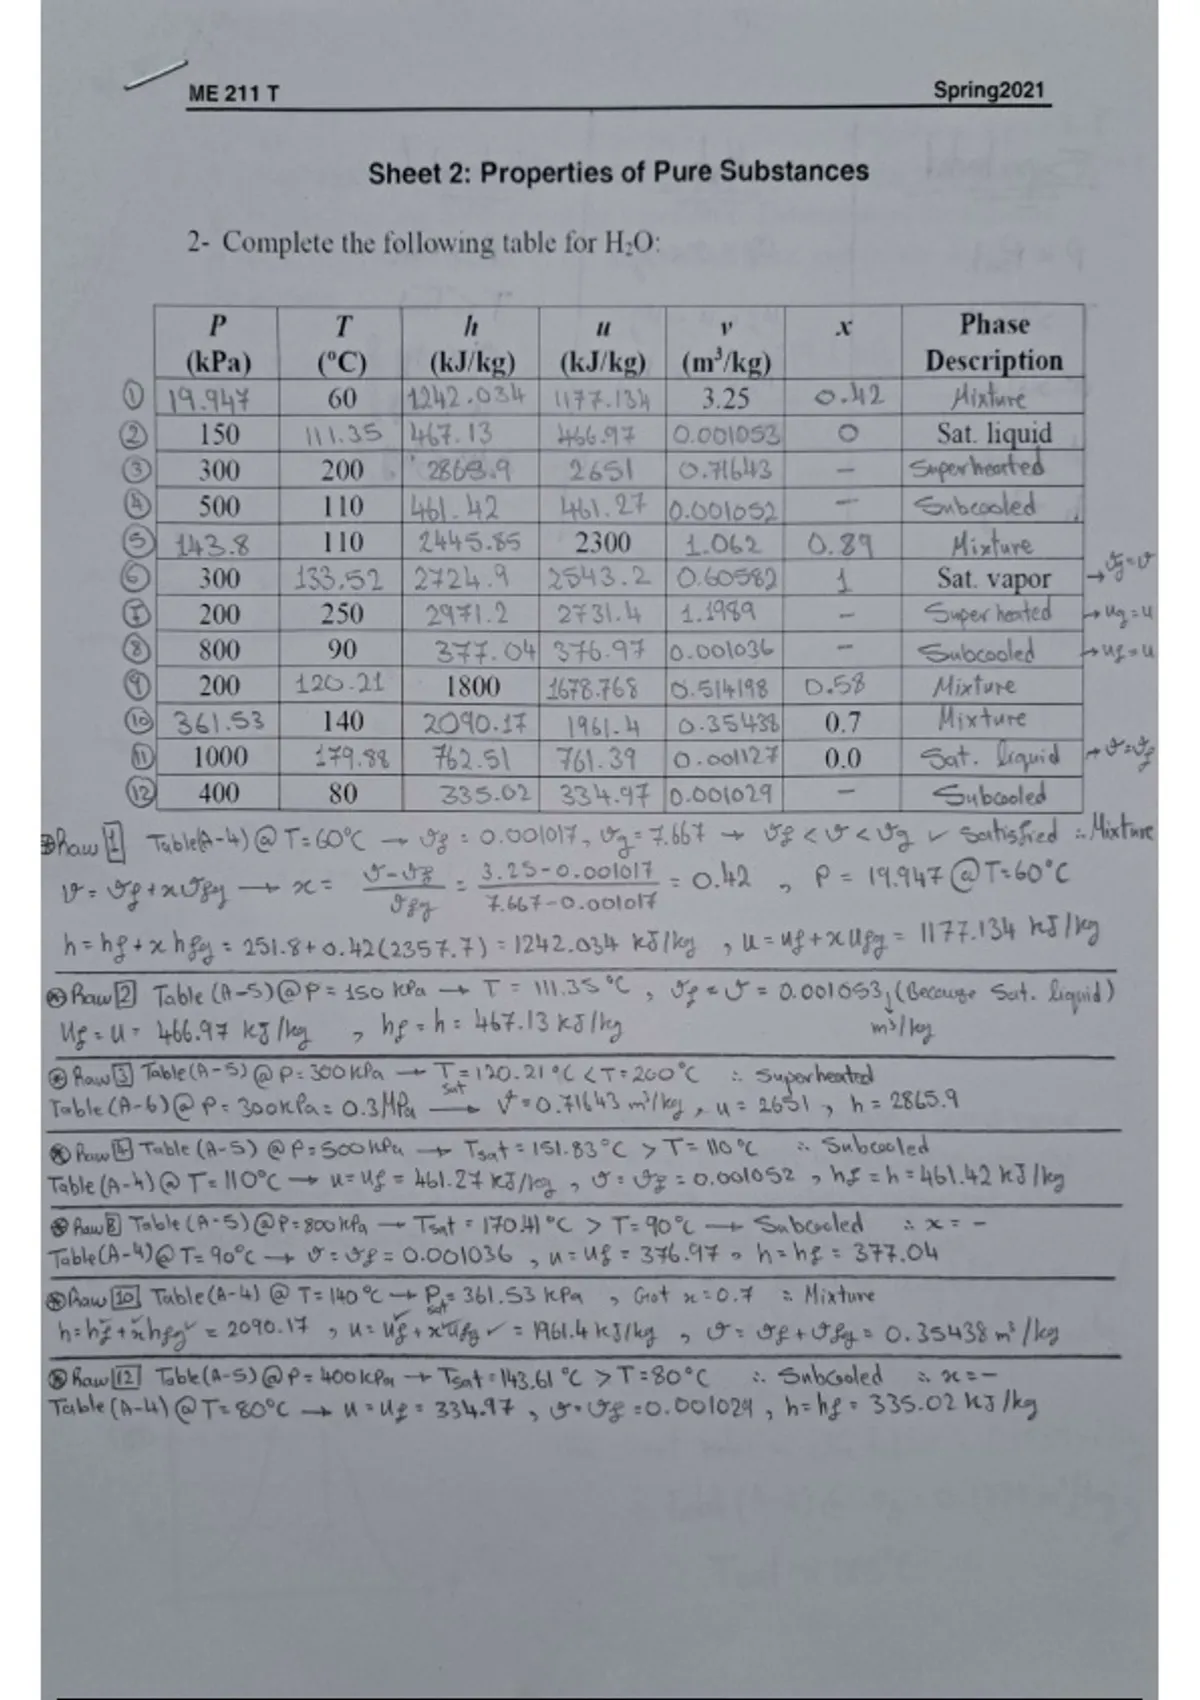 ME 211 T Spring2021
Sheet 2: Properties of Pure Substances
2- Complete the following table for H₂O:
P (kPa) T (°C) h (kJ/kg) u (kJ/kg) v (m³/kg) x Phase Description
① 19.947 60 1242.034 1177.134 3.25 0.42 Mixture
② 150 111.35 467.13 466.97 0.001053 0 Sat. liquid
③ 300 200 2865.9 2651 0.71643 – Superheated
④ 500 110 461.42 461.27 0.001052 – Subcooled
⑤ 143.8 110 2445.85 2300 1.062 0.89 Mixture
⑥ 300 133.52 2724.9 2543.2 0.60582 1 Sat. vapor → vg = v
⑦ 200 250 2971.2 2731.4 1.1989 – Superheated → ug = u
⑧ 800 90 377.04 376.97 0.001036 – Subcooled → uf = u
⑨ 200 120.21 1800 1678.768 0.514198 0.58 Mixture
⑩ 361.53 140 2090.17 1961.4 0.35438 0.7 Mixture
⑪ 1000 179.88 762.51 761.39 0.001127 0.0 Sat. liquid → v = vf
⑫ 400 80 335.02 334.97 0.001029 – Subcooled
⊛ Raw 1 Table(A-4) @ T=60°C → vf = 0.001017, vg = 7.667 → vf < v < vg ✓ Satisfied ∴ Mixture
v = vf + x vfg → x = v - vf / vfg = 3.25 - 0.001017 / 7.667 - 0.001017 = 0.42 , P = 19.947 @ T=60°C
h = hf + x hfg = 251.8 + 0.42(2357.7) = 1242.034 kJ/kg , u = uf + x ufg = 1177.134 kJ/kg
⊛ Raw 2 Table (A-5) @ P = 150 kPa → T = 111.35 °C , vf = v = 0.001053, (Because Sat. liquid)
uf = u = 466.97 kJ/kg , hf = h = 467.13 kJ/kg m³/kg
⊛ Raw 3 Table(A-5) @ P=300kPa → Tsat = 120.21°C < T=200°C ∴ Superheated
Table (A-6) @ P= 300kPa = 0.3MPa → v = 0.71643 m³/kg , u = 2651 , h = 2865.9
⊛ Raw 4 Table (A-5) @ P=500kPa → Tsat = 151.83°C > T= 110°C ∴ Subcooled
Table (A-4) @ T= 110°C → u=uf = 461.27 kJ/kg , v = vf = 0.001052 , hf = h = 461.42 kJ/kg
⊛ Raw 8 Table (A-5) @ P=800kPa → Tsat = 170.41°C > T= 90°C → Subcooled ∴ x = –
Table(A-4) @ T= 90°C → v = vf = 0.001036 , u = uf = 376.97 , h = hf = 377.04
⊛ Raw 10 Table(A-4) @ T=140°C → Psat = 361.53 kPa , Got x=0.7 ∴ Mixture
h = hf + x hfg = 2090.17 , u = uf + x ufg ✓ = 1961.4 kJ/kg , v = vf + vfg = 0.35438 m³/kg
⊛ Raw 12 Table(A-5) @ P= 400kPa → Tsat = 143.61 °C > T=80°C ∴ Subcooled ∴ x = –
Table (A-4) @ T= 80°C → u = uf = 334.97 , v = vf = 0.001029 , h=hf = 335.02 kJ/kg